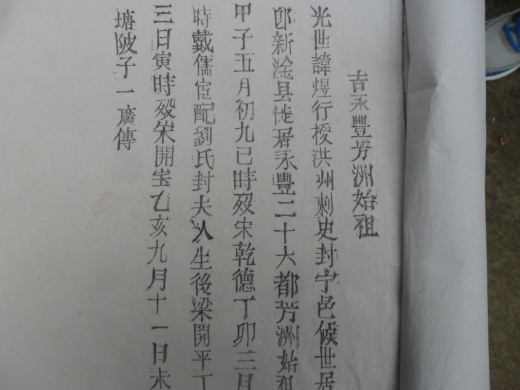 吉永豐芳洲始祖
光世諱煜行授洪州刺史封宁邑候世居
郎新淦县徙居永豐二十六都芳洲始祖
甲子五月初九巳時殁宋乾德丁卯三月
時戴儒宦配劉氏封夫人生後梁開平丁
三日寅時殁宋開宝乙亥九月十一日未
塘陂子一廣傳